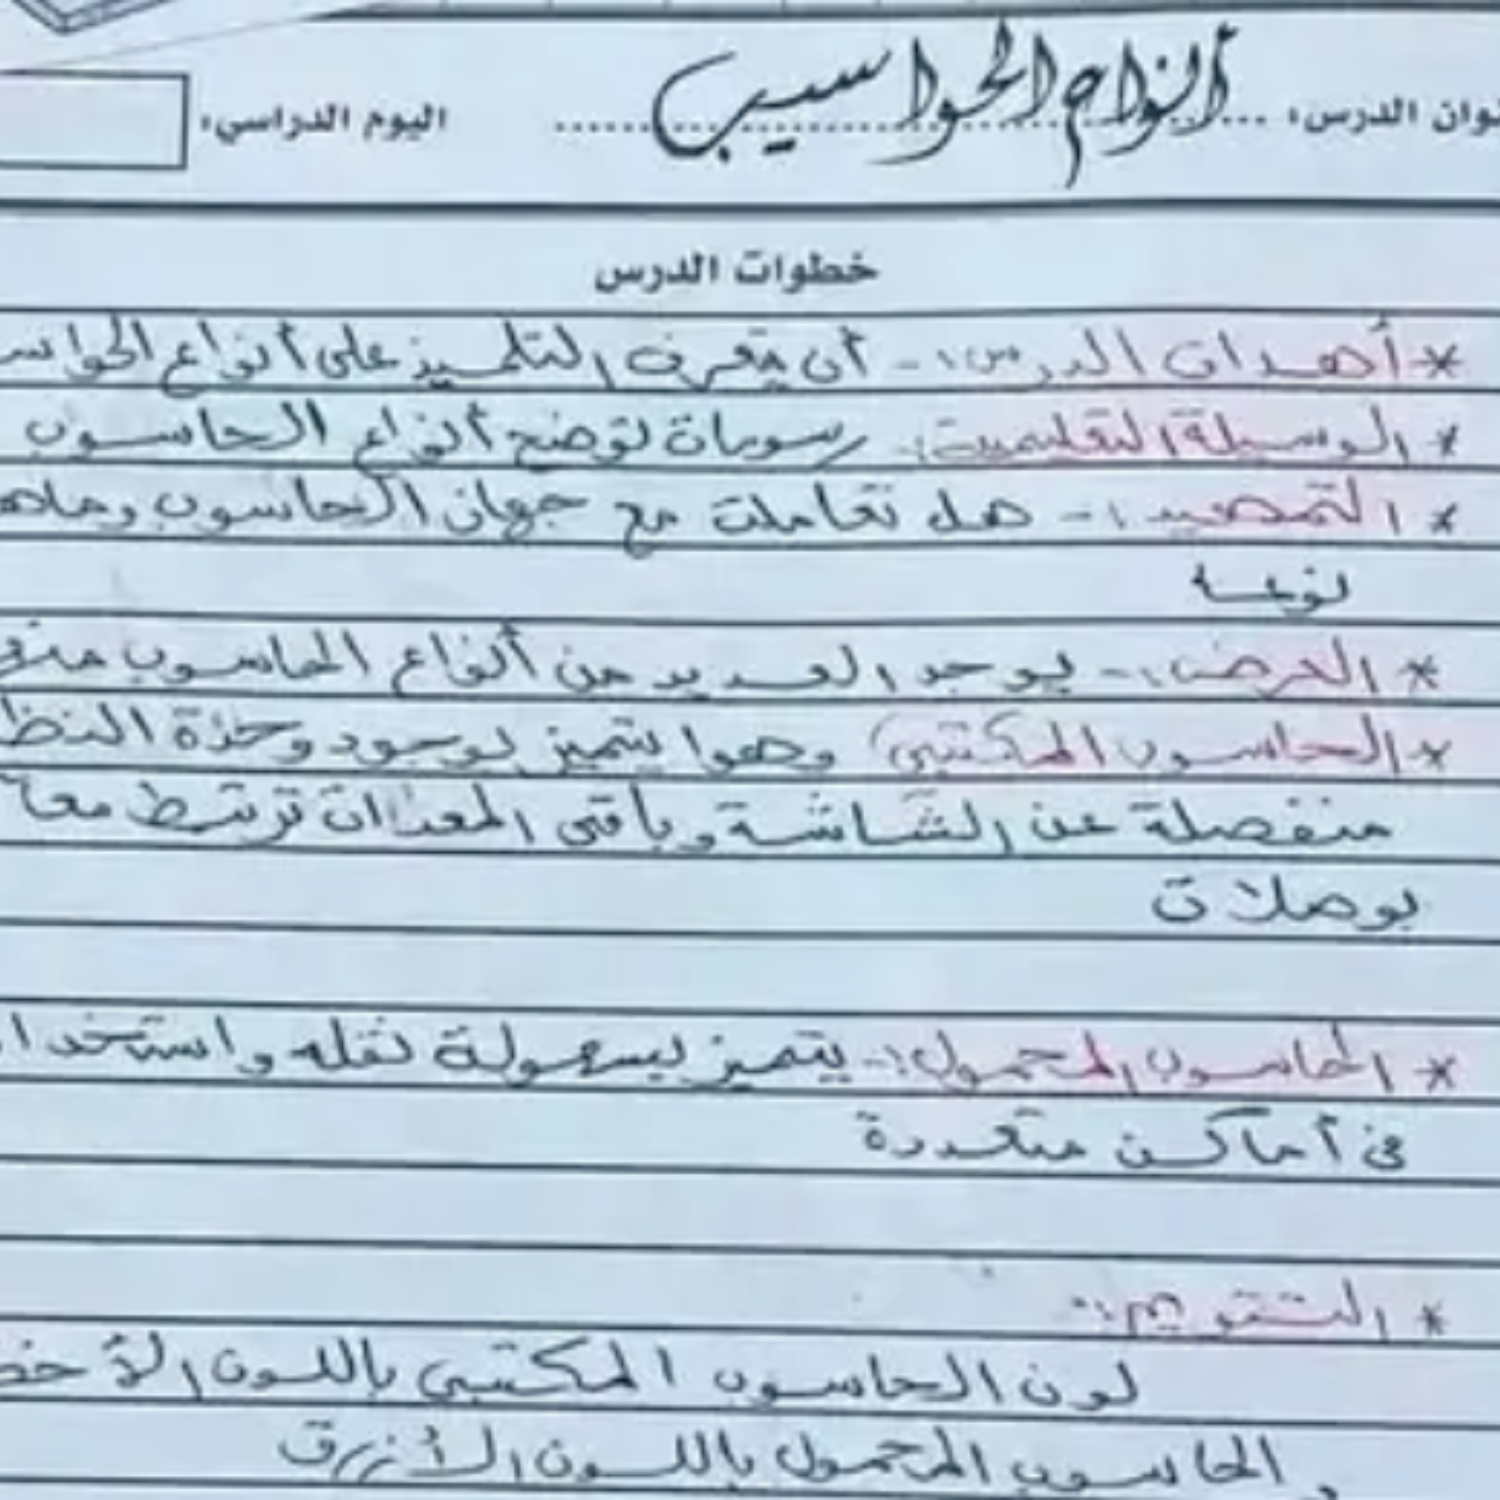 عنوان الدرس: أنواع الحواسيب اليوم الدراسي:
خطوات الدرس
* أهداف الدرس:- أن يتعرف التلميذ على أنواع
* الوسيلة التعليمية: رسومات توضح أنواع الحاسوب
* التمهيد:- هل تعاملت مع جهاز الحاسوب وماهو
نوعه
* العرض:- يوجد العديد من أنواع الحاسوب
* الحاسوب المكتبي) وهوا يتميز بوجود وحدة
منفصلة عن الشاشة وباقي المعدات ترتبط معا
بوصلات
* الحاسوب المحمول:- يتميز بسهولة نقله
في أماكن متعددة
* التقويم:-
لون الحاسوب المكتبي باللون
الحاسوب المحمول باللون الأزرق